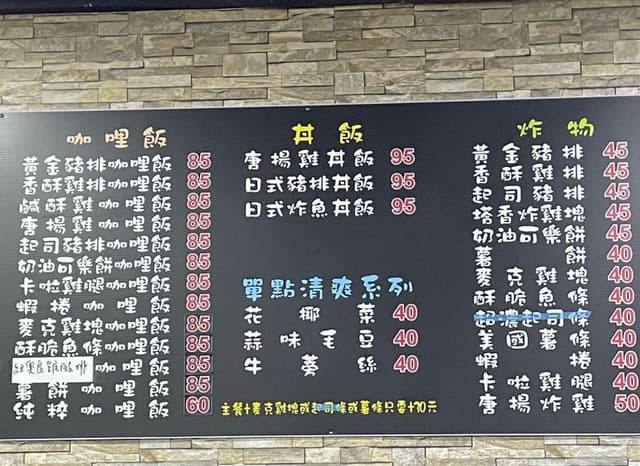 咖哩飯
黃金豬排咖哩飯 85
香酥雞排咖哩飯 85
鹹酥雞咖哩飯 85
唐揚雞咖哩飯 85
起司豬排咖哩飯 85
奶油可樂餅咖哩飯 85
卡啦雞腿咖哩飯 85
蝦捲咖哩飯 85
麥克雞塊咖哩飯 85
酥脆魚條咖哩飯 85
紐奧良雞腿排咖哩飯 85
薯餅咖哩飯 85
純粹咖哩飯 60
丼飯
唐揚雞丼飯 95
日式豬排丼飯 95
日式炸魚丼飯 95
單點清爽系列
花椰菜 40
蒜味毛豆 40
牛蒡絲 40
主餐+麥克雞塊或起司條或薯條只要+30元
炸物
黃金豬排 45
香酥雞排 45
起司豬排 45
塔香炸雞塊 45
奶油可樂餅 45
薯餅 40
麥克雞塊 40
酥脆魚條 40
超濃起司條 40
美國薯條 40
蝦捲 40
卡啦雞腿 40
唐揚炸雞 50